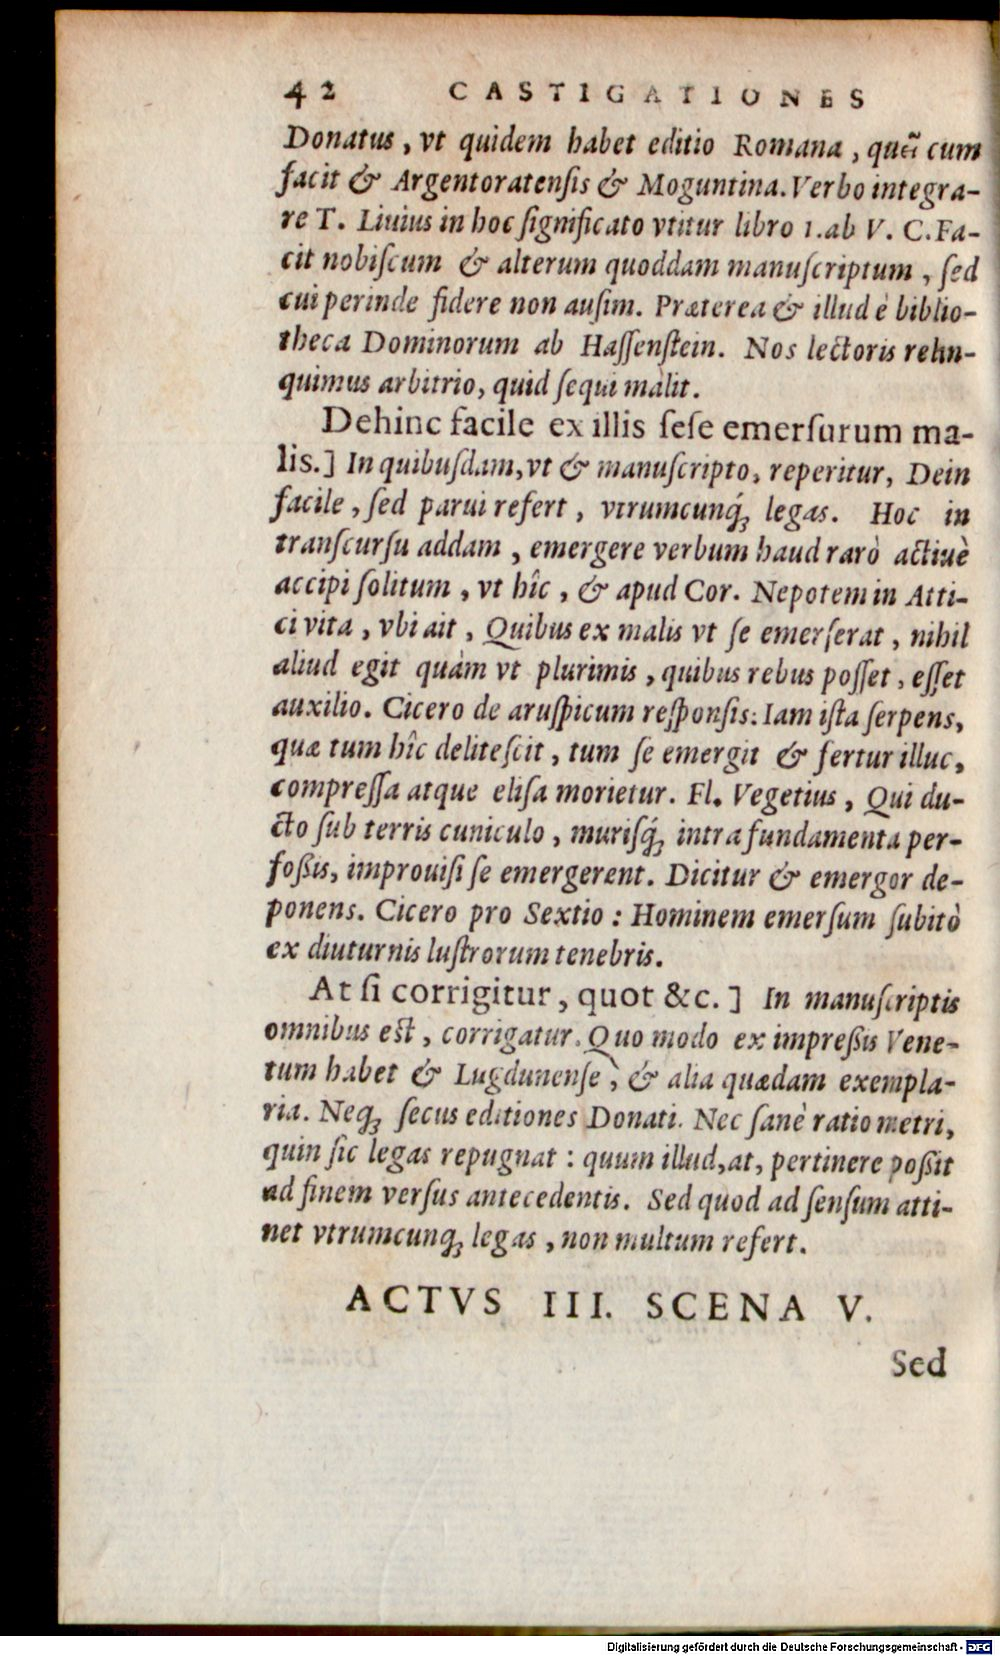 42 CASTIGATIONES
Donatus, vt quidem habet editio Romana, quẽ cum
facit & Argentoratenſis & Moguntina. Verbo integra-
re T. Liuius in hoc ſignificato vtitur libro 1. ab V. C. Fa-
cit nobiſcum & alterum quoddam manuſcriptum, ſed
cui perinde fidere non auſim. Præterea & illud è biblio-
theca Dominorum ab Haſſenſtein. Nos lectoris relin-
quimus arbitrio, quid ſequi màlit.
Dehinc facile ex illis ſeſe emerſurum ma-
lis.] In quibuſdam, vt & manuſcripto, reperitur, Dein
facile, ſed parui refert, vtrumcunq́ꝫ legas. Hoc in
tranſcurſu addam, emergere verbum haud rarò actiuè
accipi ſolitum, vt hîc, & apud Cor. Nepotem in Atti-
ci vita, vbi ait, Quibus ex malis vt ſe emerſerat, nihil
aliud egit quàm vt plurimis, quibus rebus poſſet, eſſet
auxilio. Cicero de aruſpicum reſponſis: Iam iſta ſerpens,
quæ tum hîc deliteſcit, tum ſe emergit & fertur illuc,
compreſſa atque eliſa morietur. Fl. Vegetius, Qui du-
cto ſub terris cuniculo, muriſq́ꝫ intra fundamenta per-
foßis, improuiſi ſe emergerent. Dicitur & emergor de-
ponens. Cicero pro Sextio: Hominem emerſum ſubitò
ex diuturnis luſtrorum tenebris.
At ſi corrigitur, quot &c.] In manuſcriptis
omnibus eſt, corrigatur. Quo modo ex impreßis Vene-
tum habet & Lugdunenſe, & alia quædam exempla-
ria. Neqꝫ ſecus editiones Donati. Nec ſanè ratio metri,
quin ſic legas repugnat: quum illud, at, pertinere poßit
ad finem verſus antecedentis. Sed quod ad ſenſum atti-
net vtrumcunqꝫ legas, non multum refert.
ACTVS III. SCENA V.
Sed
Digitalisierung gefördert durch die Deutsche Forschungsgemeinschaft - DFG